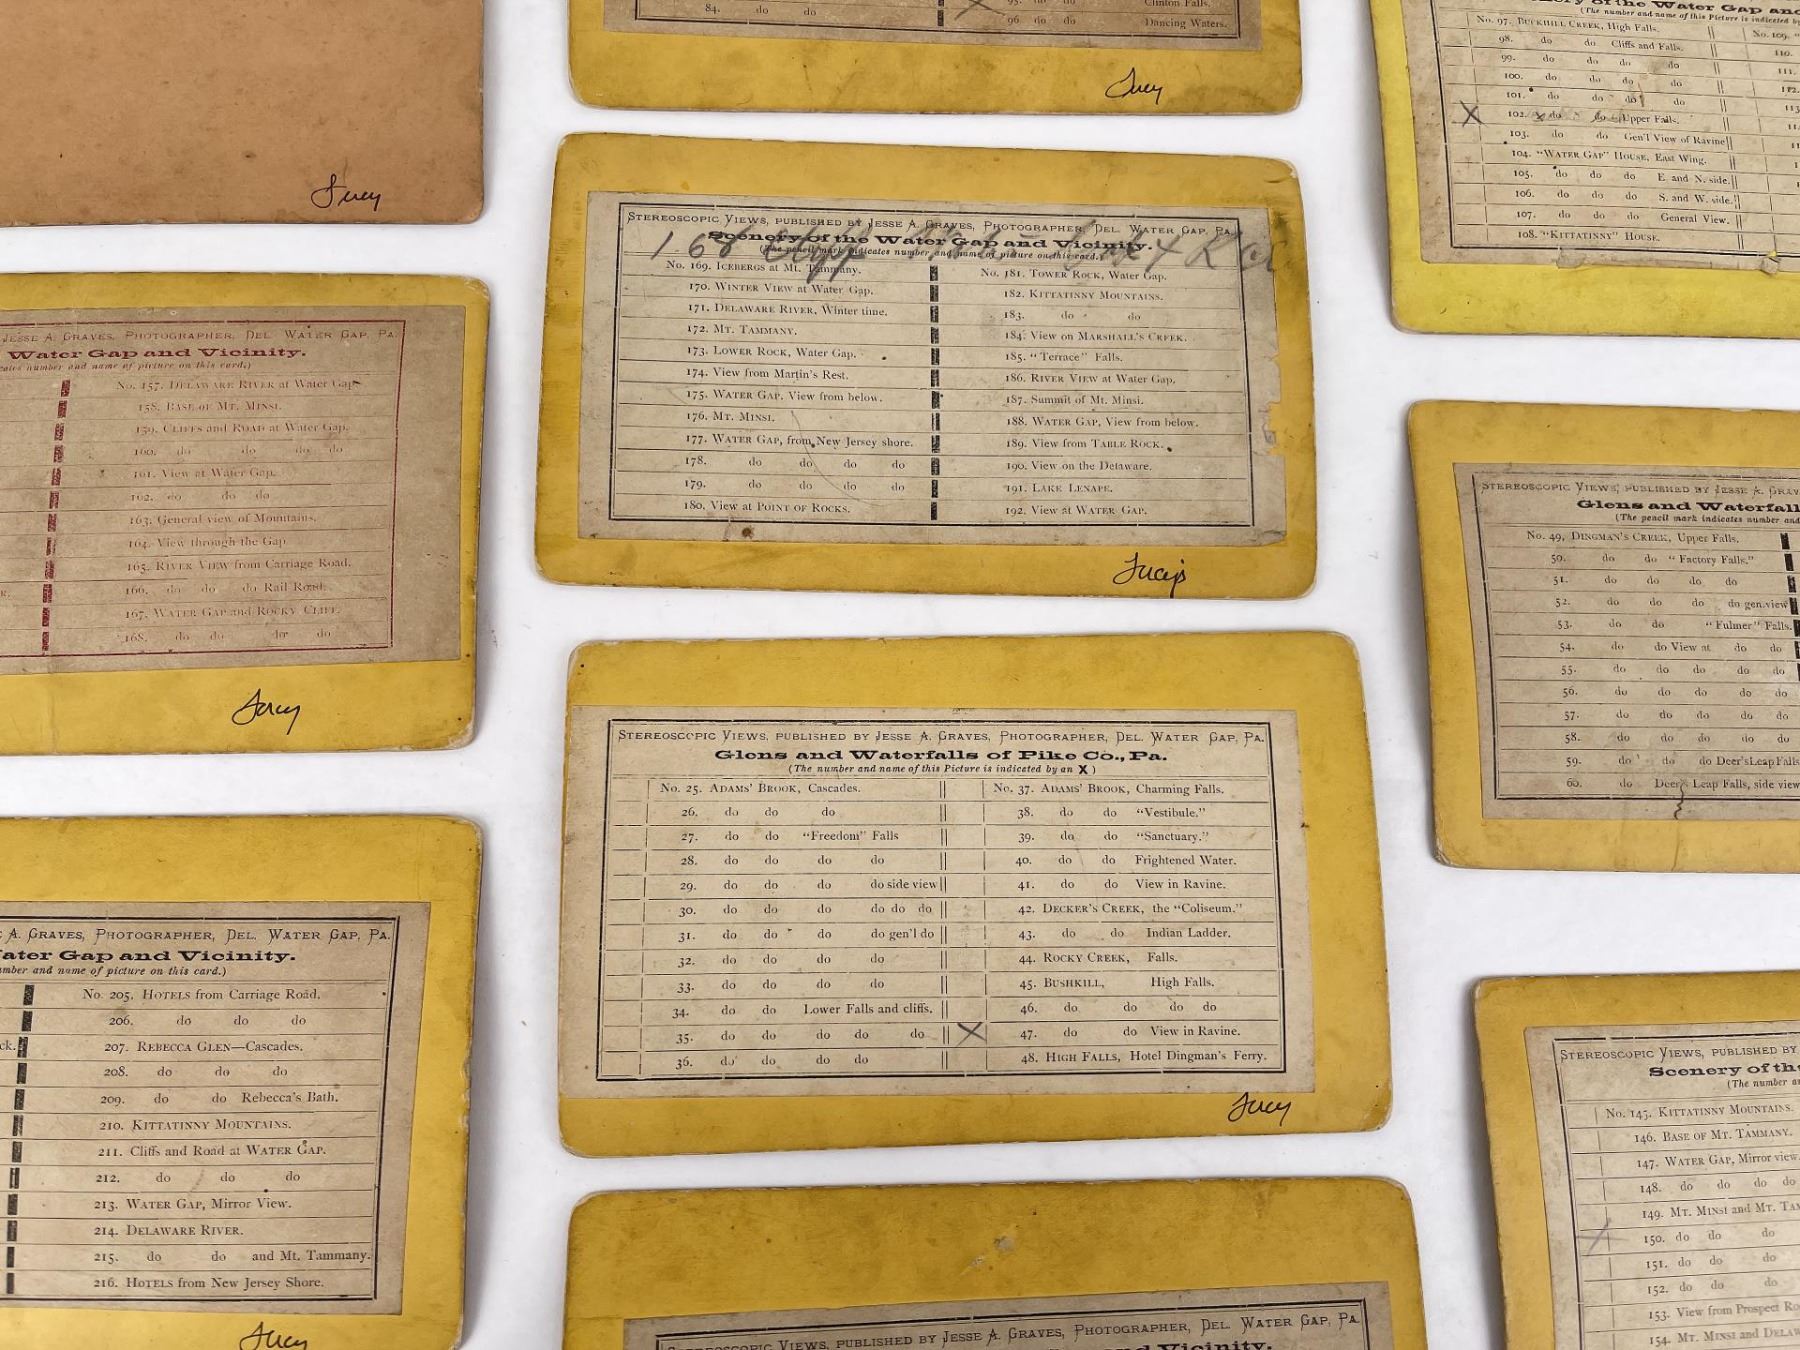 84. do do
95. do do Clinton Falls.
96 do do Dancing Waters.
Lucy
Scenery of the Water Gap and
(The number and name of this Picture is indicated by
No. 97. BUCKHILL CREEK, High Falls.
No. 109.
98. do do Cliffs and Falls.
110.
99. do do do do
111.
100. do do do do
112.
101. do do do do
113
X 102. do do Upper Falls.
103. do do Gen'l View of Ravine
104. "WATER GAP" HOUSE, East Wing.
105. do do do E. and N. side.
106. do do do S. and W. side.
107. do do do General View.
108. "KITTATINNY" HOUSE.
Lucy
STEREOSCOPIC VIEWS, PUBLISHED BY JESSE A. GRAVES, PHOTOGRAPHER, DEL. WATER GAP, PA.
Scenery of the Water Gap and Vicinity.
(The pencil mark indicates number and name of picture on this card.)
168
No. 169. ICEBERGS at Mt. Tammany.
170. WINTER VIEW at Water Gap.
171. DELAWARE RIVER, Winter time.
172. MT. TAMMANY.
173. LOWER ROCK, Water Gap.
174. View from Martin's Rest.
175. WATER GAP, View from below.
176. MT. MINSI.
177. WATER GAP, from New Jersey shore.
178. do do do do
179. do do do do
180. View at POINT OF ROCKS.
No. 181. TOWER ROCK, Water Gap.
182. KITTATINNY MOUNTAINS.
183. do do
184. View on MARSHALL'S CREEK.
185. "Terrace" Falls.
186. RIVER VIEW at Water Gap.
187. Summit of Mt. Minsi.
188. WATER GAP, View from below.
189. View from TABLE ROCK.
190. View on the Delaware.
191. LAKE LENAPE.
192. View at WATER GAP.
Lucy's
JESSE A. GRAVES, PHOTOGRAPHER, DEL. WATER GAP, PA.
Water Gap and Vicinity.
cates number and name of picture on this card.)
No. 157. DELAWARE RIVER at Water Gap
158. BASE OF MT. MINSI.
159. CLIFFS and ROAD at Water Gap.
160. do do do do
161. View at Water Gap.
162. do do do
163. General view of Mountains.
164. View through the Gap
165. RIVER VIEW from Carriage Road.
166. do do do Rail Road.
167. WATER GAP and ROCKY CLIFF.
168. do do do do
R.
Lucy
STEREOSCOPIC VIEWS, PUBLISHED BY JESSE A. GRAV
Glens and Waterfall
(The pencil mark indicates number and
No. 49, DINGMAN'S CREEK, Upper Falls.
50. do do "Factory Falls."
51. do do do do
52. do do do do gen.view
53. do do "Fulmer" Falls.
54. do do View at do do
55. do do do do do
56. do do do do do
57. do do do do do
58. do do do do do
59. do do do Deer'sLeap Falls
60. do Deer's Leap Falls, side view
STEREOSCOPIC VIEWS, PUBLISHED BY JESSE A. GRAVES, PHOTOGRAPHER, DEL. WATER GAP, PA.
Glens and Waterfalls of Pike Co., Pa.
(The number and name of this Picture is indicated by an X)
No. 25. ADAMS' BROOK, Cascades.
26. do do do
27. do do "Freedom" Falls
28. do do do do
29. do do do do side view
30. do do do do do do
31. do do do do gen'l do
32. do do do do
33. do do do do
34. do do Lower Falls and cliffs.
35. do do do do do
36. do do do do
No. 37. ADAMS' BROOK, Charming Falls.
38. do do "Vestibule."
39. do do "Sanctuary."
40. do do Frightened Water.
41. do do View in Ravine.
42. DECKER'S CREEK, the "Coliseum."
43. do do Indian Ladder.
44. ROCKY CREEK, Falls.
45. BUSHKILL, High Falls.
46. do do do do
X 47. do do View in Ravine.
48. HIGH FALLS, Hotel Dingman's Ferry.
Lucy
A. GRAVES, PHOTOGRAPHER, DEL. WATER GAP, PA.
ater Gap and Vicinity.
mber and name of picture on this card.)
No. 205. HOTELS from Carriage Road.
206. do do do
ck. 207. REBECCA GLEN—Cascades.
208. do do do
209. do do Rebecca's Bath.
210. KITTATINNY MOUNTAINS.
211. Cliffs and Road at WATER GAP.
212. do do do
213. WATER GAP, Mirror View.
214. DELAWARE RIVER.
215. do do and Mt. Tammany.
216. HOTELS from New Jersey Shore.
Lucy
STEREOSCOPIC VIEWS, PUBLISHED BY
Scenery of th
(The number a
No. 145. KITTATINNY MOUNTAINS.
146. BASE OF MT. TAMMANY.
147. WATER GAP, Mirror view.
148. do do do do
149. MT. MINSI and MT. TAM
X 150. do do do
151. do do do
152. do do do
153. View from Prospect Ro
154. MT. MINSI and DELAW
STEREOSCOPIC VIEWS, PUBLISHED BY JESSE A. GRAVES, PHOTOGRAPHER, DEL. WATER GAP, PA.
nd Vicinity.